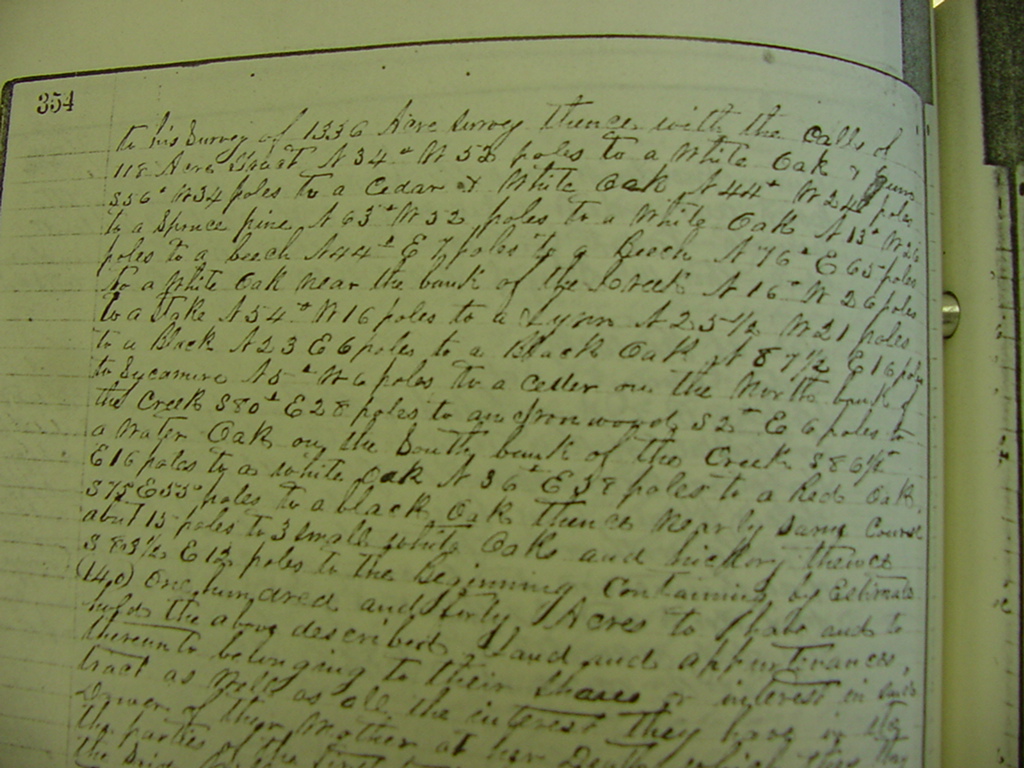 354
to his Survey of 1336 Acre Survey thence with the Calls of
118 Acre Tract N 34° W 52 poles to a White Oak & Gum
S56° W34 poles to a Cedar & White Oak N44° W 24 poles
to a Spruce pine N 63° W 32 poles to a White Oak N 13° W 26
poles to a beech N44° E 7 poles to a Beech N 76° E 65 poles
to a White Oak near the bank of the Creek N 16° W 26 poles
to a Stake N54° W16 poles to a Lynn N 25 1/2 W 21 poles
to a Black N23 E 6 poles to a Black Oak N 87 1/2 E 16 poles
to Sycamore N5° W 6 poles to a Ceder on the North bank of
the Creek S80° E28 poles to an Ironwood S2° E 6 poles to
a Water Oak on the South bank of the Creek S 86 1/2°
E16 poles to a white Oak N 36° E 38 poles to a Red Oak
S75 E55 poles to a black Oak thence nearly same Course
about 15 poles to 3 small white Oaks and hickory thence
S 83 1/2 E 12 poles to the Beginning Containing by Estimate
(140) One hundred and forty Acres to have and to
hold the above described Land and appurtenances,
thereunto belonging to their Shares or interest in said
tract as well as all the interest they have in the
Dower of their Mother at her Death which they the
the parties of the first
the said